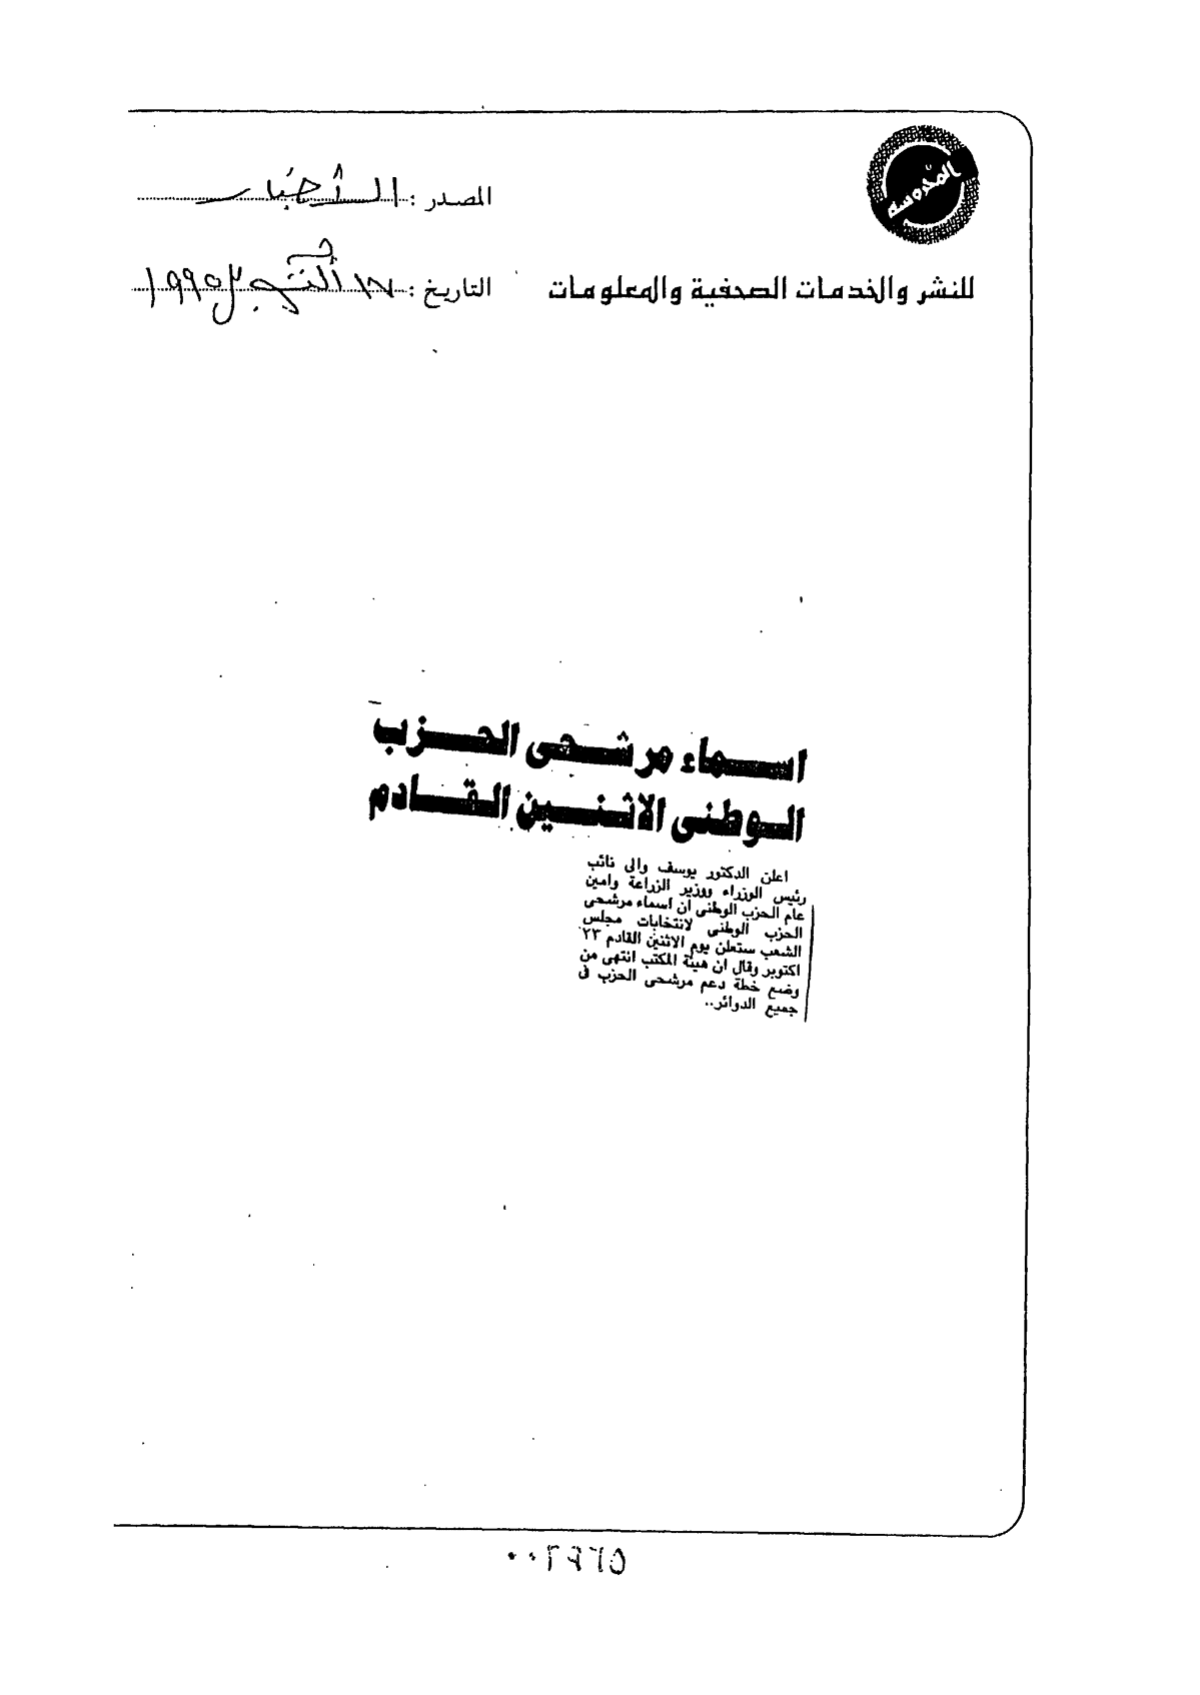 المحروسة
المصدر : الأخبار
للنشر والخدمات الصحفية والمعلومات
التاريخ : ١٧ أكتوبر ١٩٩٥
اسماء مرشحى الحزب
الوطنى الاثنين القادم
اعلن الدكتور يوسف والى نائب
رئيس الوزراء ووزير الزراعة وامين
عام الحزب الوطنى ان اسماء مرشحى
الحزب الوطنى لانتخابات مجلس
الشعب ستعلن يوم الاثنين القادم ٢٣
اكتوبر وقال ان هيئة المكتب انتهى من
وضع خطة دعم مرشحى الحزب فى
جميع الدوائر..